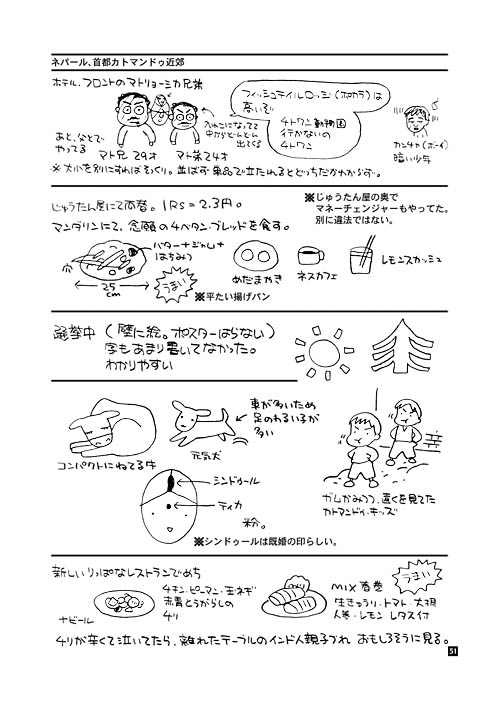 ネパール、首都カトマンドゥ近郊
ホテル、フロントのマトリョーシカ兄弟
あと、父とで
やってる
マト兄 29才
マト弟 24才
入れこになってて
中からどんどん
出てくる
フィッシュテイルロッジ(ポカラ)は
高いぞ
チトワン動物園
行かないの
チトワン
カンチャ(ボーイ)
暗い少年
※大小を別にすればそっくり。並ばず単品で立たれるとどっちだかわからず。
じゅうたん屋にて両替。1Rs=2.3円。
※じゅうたん屋の奥で
マネーチェンジャーもやってた。
別に違法ではない。
マンダリンにて、念願のチベタン・ブレッドを食す。
バター+ジャム+
はちみつ
25
cm
うまい
※平たい揚げパン
めだまやき
ネスカフェ
レモンスカッシュ
選挙中(壁に絵。ポスターはらない)
字もあまり書いてなかった。
わかりやすい
コンパクトにねてる牛
元気犬
車が多いため
足のわるい子が
多い
シンドゥール
ティカ
粉。
※シンドゥールは既婚の印らしい。
ガムかみつつ、遠くを見てた
カトマンドゥ・キッズ
新しいりっぱなレストランでめち
+ビール
チキン・ピーマン・玉ネギ
赤青とうがらしの
チリ
MIX春巻
生きゅうり・トマト・大根
人参・レモン レタス付
うまい
チリが辛くて泣いてたら、離れたテーブルのインド人親子づれ おもしろそうに見る。
51